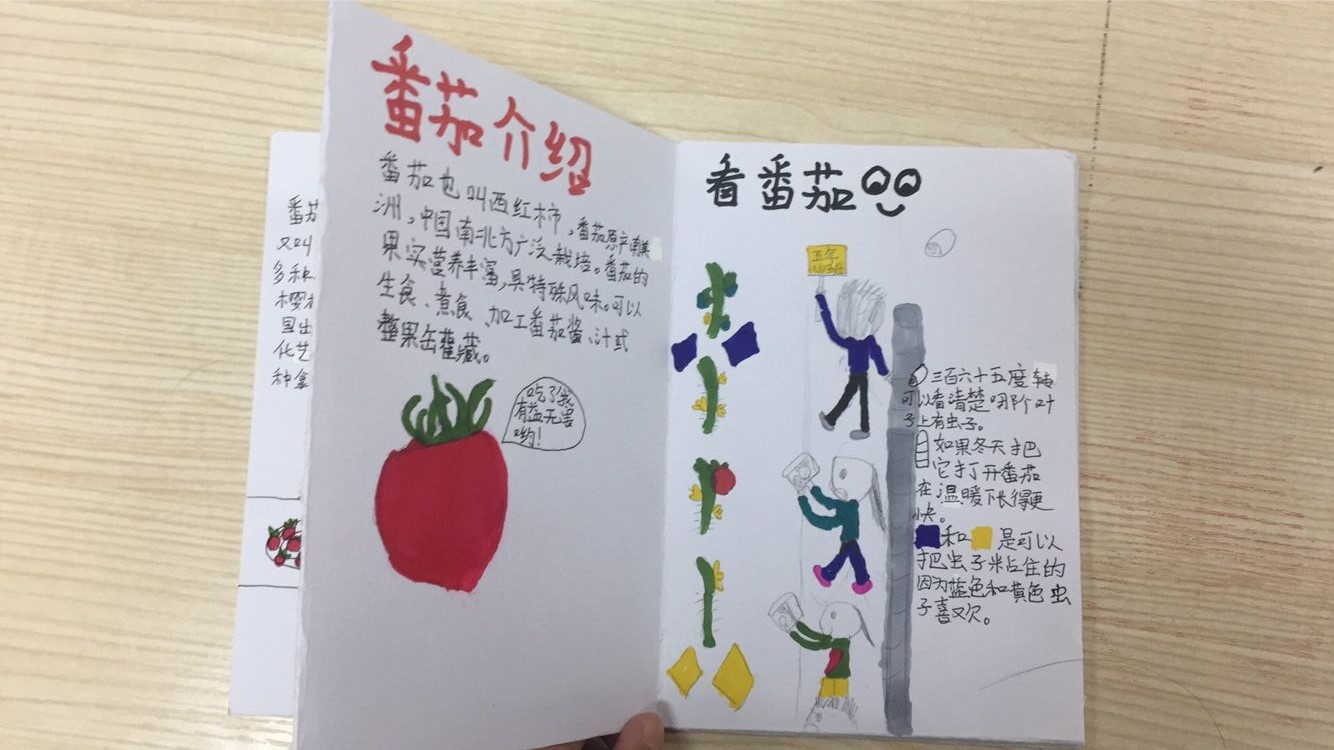 番茄
又叫
多种
樱
国
化艺
种拿
番茄介绍
番茄也叫西红柿，番茄原产南美
洲，中国南北方广泛栽培。番茄的
果实营养丰富，具特殊风味。可以
生食、煮食、加工番茄酱、汁或
整果缶藏。
吃了我
有益无害
哟！
看番茄
五年
三百六十五度转
可以看清楚哪个叶
子上有虫子。
如果冬天把
它打开番茄
在温暖下长得更
快。
和 是可以
把虫子粘住的
因为蓝色和黄色虫
子喜欢。